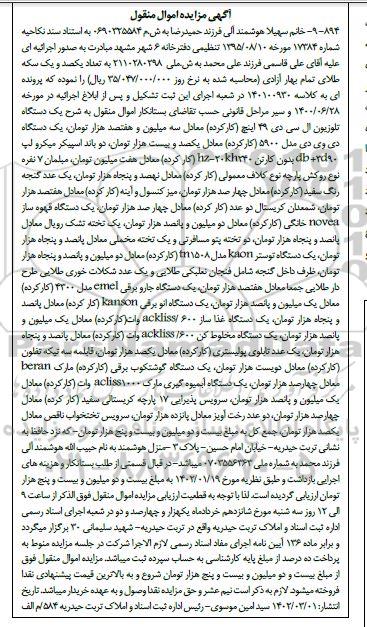 آگهی مزایده اموال منقول
۹-۸۹۴- خانم سهیلا هوشمند آلی فرزند حمیدرضا به ش‌م ۰۶۹۰۳۲۵۵۸۴ به استناد سند نکاحیه
شماره ۱۷۳۸۴ مورخه ۱۳۹۵/۰۸/۱۰ تنظیمی دفترخانه ۶ شهر مشهد مبادرت به صدور اجرائیه ای
علیه آقای علی قاسمی فرزند علی محمد به ش‌ملی ۲۱۱۰۲۸۰۲۹۸ به تعداد یکصد و یک سکه
طلای تمام بهار آزادی (محاسبه شده به نرخ روز ۳۵/۰۴۷/۰۰۰/۰۰۰ ریال) را نموده که پرونده
ای به کلاسه ۱۴۰۱۰۰۹۳۰ در شعبه اجرای این ثبت تشکیل و پس از ابلاغ اجرائیه در مورخه
۱۴۰۰/۰۶/۲۸ و سیر مراحل قانونی حسب تقاضای بستانکار اموال منقول به شرح یک دستگاه
تلوزیون ال سی دی ۴۹ اینچ (کارکرده) معادل سه میلیون و هفتصد هزار تومان، یک دستگاه
دی وی دی مدل ۵۹۰۰ (کارکرده) معادل یکصد و بیست هزار تومان، دو باند اسپیکر میکرو لب
db+۳d۹۰ بدون کارتن hz-۲۰kh۲۴۰ (کار کرده) معادل هفت میلیون تومان، مبلمان ۷ نفره
نوع روکش پارچه نوع کلاف معمولی (کارکرده) معادل نهصد و پنجاه هزار تومان، یک عدد گنجه
رنگ سفید (کارکرده) معادل چهار صد هزار تومان، میز کنسول و آینه (کار کرده) معادل هفتصد هزار
تومان، شمعدان کریستال دو عدد (کار کرده) معادل چهار صد هزار تومان، یک دستگاه قهوه ساز
novea خانگی (کارکرده) معادل دو میلیون و پانصد هزار تومان، یک تخته تشک رویال معادل
پانصد و پنجاه هزار تومان، دو تخته پتو مسافرتی و یک تخته مخملی معادل پانصد و پنجاه هزار
تومان، یک دستگاه توستر kaon مدل tm۱۵۰۸ (کارکرده) معادل دو میلیون و پانصد و پنجاه هزار
تومان، ظرف داخل گنجه شامل فنجان نعلبکی طلایی و یک عدد شکلات خوری طلایی طرح
دار طلایی جمعا معادل هفتصد هزار تومان، یک دستگاه جارو برقی emel مدل ۳۳۰۰ (کارکرده)
معادل یک میلیون و پانصد هزار تومان، یک دستگاه اتو برقی kanson (کار کرده) معادل پانصد
و پنجاه هزار تومان، یک دستگاه غذا ساز ackliss/ ۶۰۰ وات(کارکرده) معادل یک میلیون و
پانصد هزار تومان، یک دستگاه مخلوط کن ackliss/۶۰۰ وات(کار کرده) معادل پانصد و پنجاه
هزار تومان، یک عدد تابلوی پولیستری (کارکرده) معادل یکصد هزار تومان، قابلمه سه تیکه تفلون
(کارکرده) معادل دویست هزار تومان، یک دستگاه گوشتکوب برقی (کارکرده) مارک beran
معادل چهارصد هزار تومان، یک دستگاه آبمیوه گیری مارک acliss۱۰۰۰ وات (کارکرده) معادل
یک میلیون و پانصد هزار تومان، سرویس پذیرایی ۱۷ پارچه کریستالی سفید (کار کرده) معادل
چهارصد هزار تومان، دو عدد رخت آویز معادل پانزده هزار تومان، سرویس تختخواب ناقص معادل
یکصد هزار تومان، جمع کل به مبلغ بیست و دو میلیون و بیست و پنج هزار تومان- که نزد حافظ به
نشانی تربت حیدریه- خیابان امام خمینی- پلاک ۳ -منزل هوشمند به نام حبیب الله هوشمند آلی
فرزند محمد به شماره ملی ۰۷۰۲۵۵۶۳۶۲ میباشد- در قبال قسمتی از طلب بستانکار و هزینه های
اجرایی بازداشت و طبق نظریه مورخ ۱۴۰۲/۰۱/۱۹ به مبلغ بیست و دو میلیون و بیست و پنج هزار
تومان ارزیابی گردیده است. لذا با توجه به قطعیت ارزیابی مزایده اموال منقول فوق الذکر از ساعت ۹
الی ۱۲ روز سه شنبه مورخ شانزدهم خردادماه یکهزار و چهارصد و دو در شعبه اجرای اسناد رسمی
اداره ثبت اسناد و املاک تربت حیدریه واقع در تربت حیدریه- شهید سلیمانی ۳۰ برگزار میگردد
و برابر ماده ۱۳۶ آیین نامه اجرای مفاد اسناد رسمی لازم الاجرا شرکت در جلسه مزایده منوط به
پرداخت ده درصد از مبلغ پایه کارشناسی به حساب سپرده ثبت میباشد. مزایده اموال منقول فوق
از مبلغ بیست و دو میلیون و بیست و پنج هزار تومان شروع و به بالاترین قیمت پیشنهادی نقدا
فروخته میشود. لازم به ذکر است نیم عشر و حق مزایده نقدا وصول و به عهده خریدار میباشد. تاریخ
انتشار: ۱۴۰۲/۰۳/۰۱ سید امین موسوی- رئیس اداره ثبت اسناد و املاک تربت حیدریه ۵۸۴/م الف